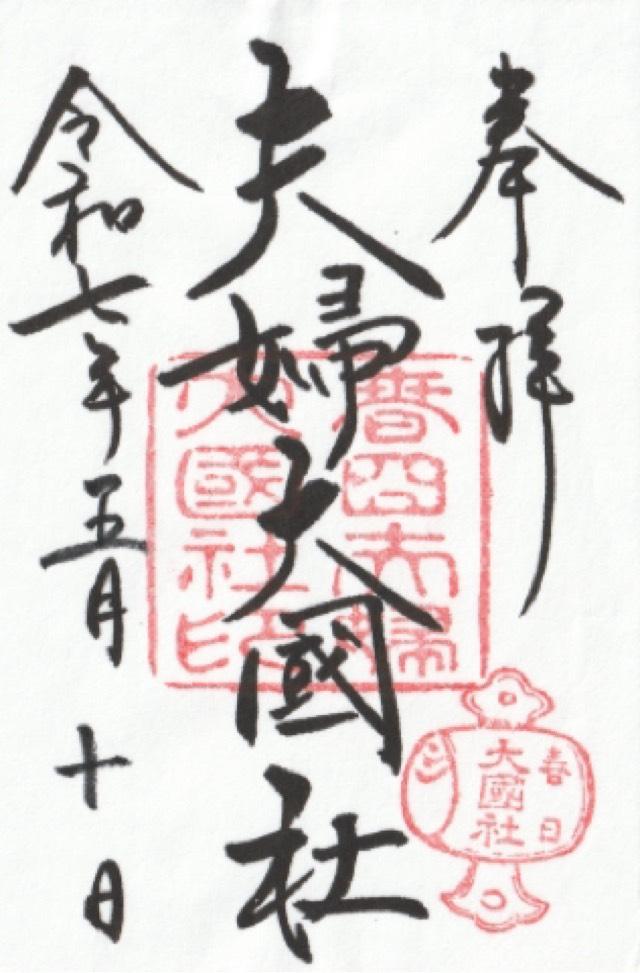 奉拝
夫婦大國社
令和七年五月十日
春日夫婦
大國社印
春日
大國社